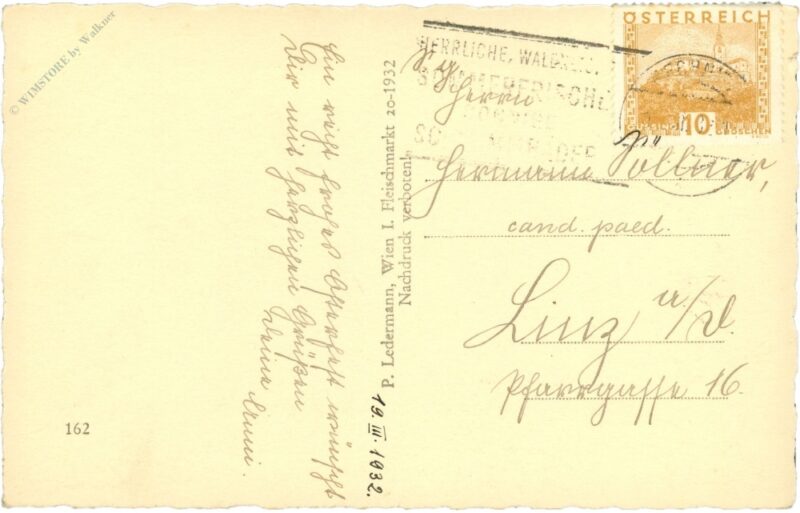 © WIMSTORE by Walkner
Ein recht frohes Osterfest wünscht
Dir mit herzlichen Grüßen
Deine Anni.
162
P. Ledermann, Wien I. Fleischmarkt 20-1932
Nachdruck verboten!
19. III. 1932.
HERRLICHE, WALDREICHE
SOMMERFRISCHE
ÖSTERREICH
10 GROSCHEN
Sg. Herrn
Hermann Söllner,
cand. paed.
Linz a/D.
Pfarrgasse 16.